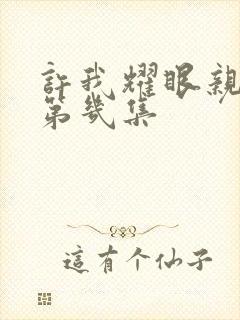 許我耀眼親
第幾集
這有个仙子